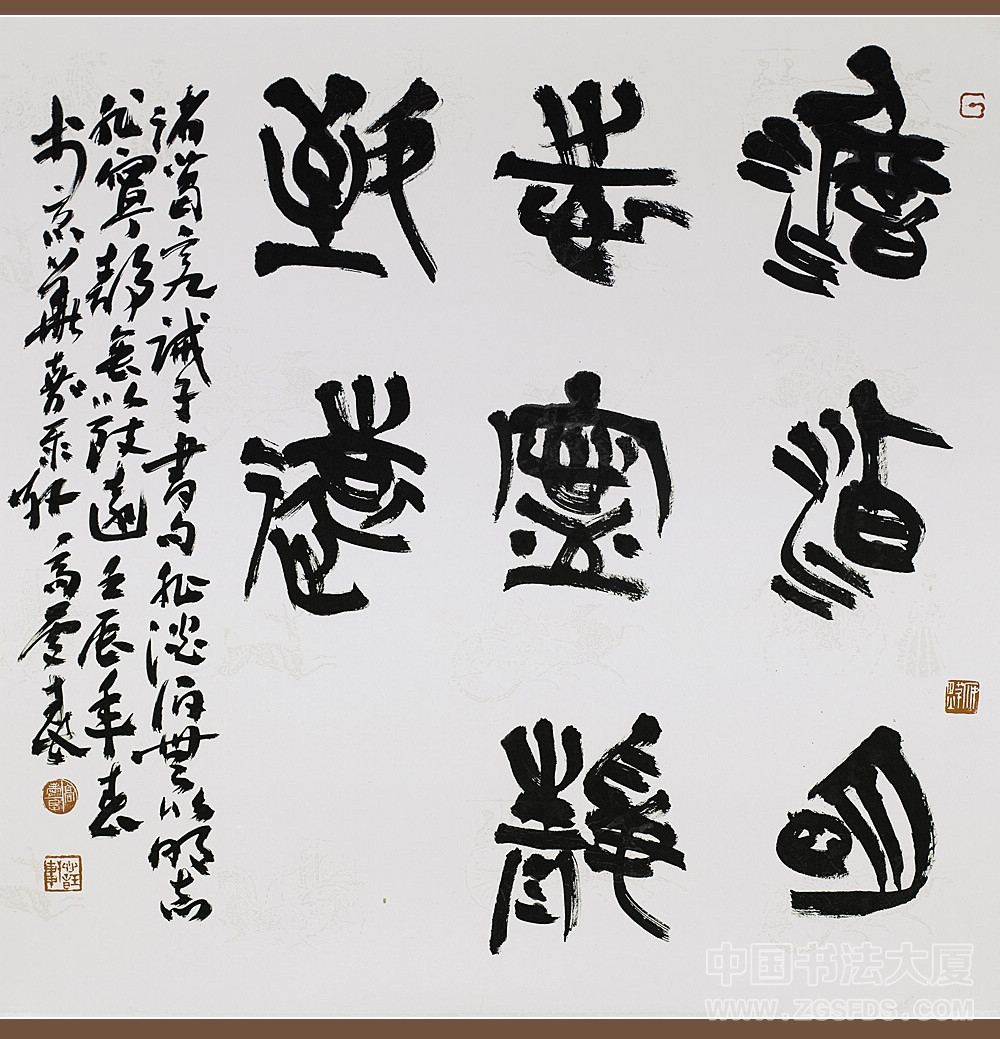 澹泊明
志寧靜
致遠
诸葛亮诫子書句非澹泊無以明志
非寧靜無以致遠壬辰年春
京華嘉乐高慶春
中国书法大厦
WWW.ZGSFDS.COM